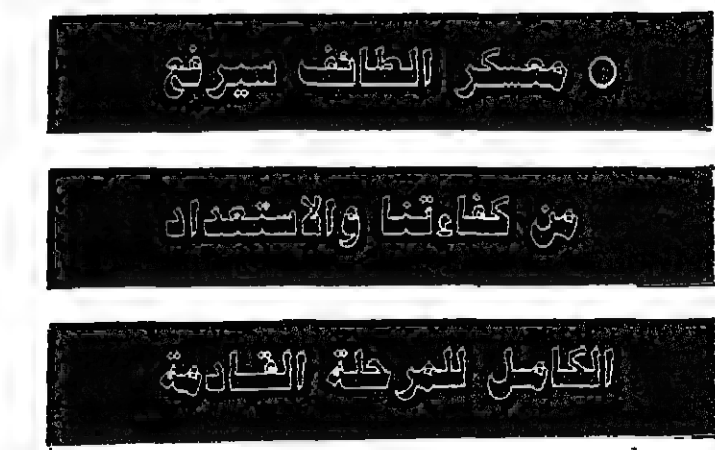 ○ معسكر الطائف سيرفع
من كفاءتنا والاستعداد
الكامل للمرحلة القادمة